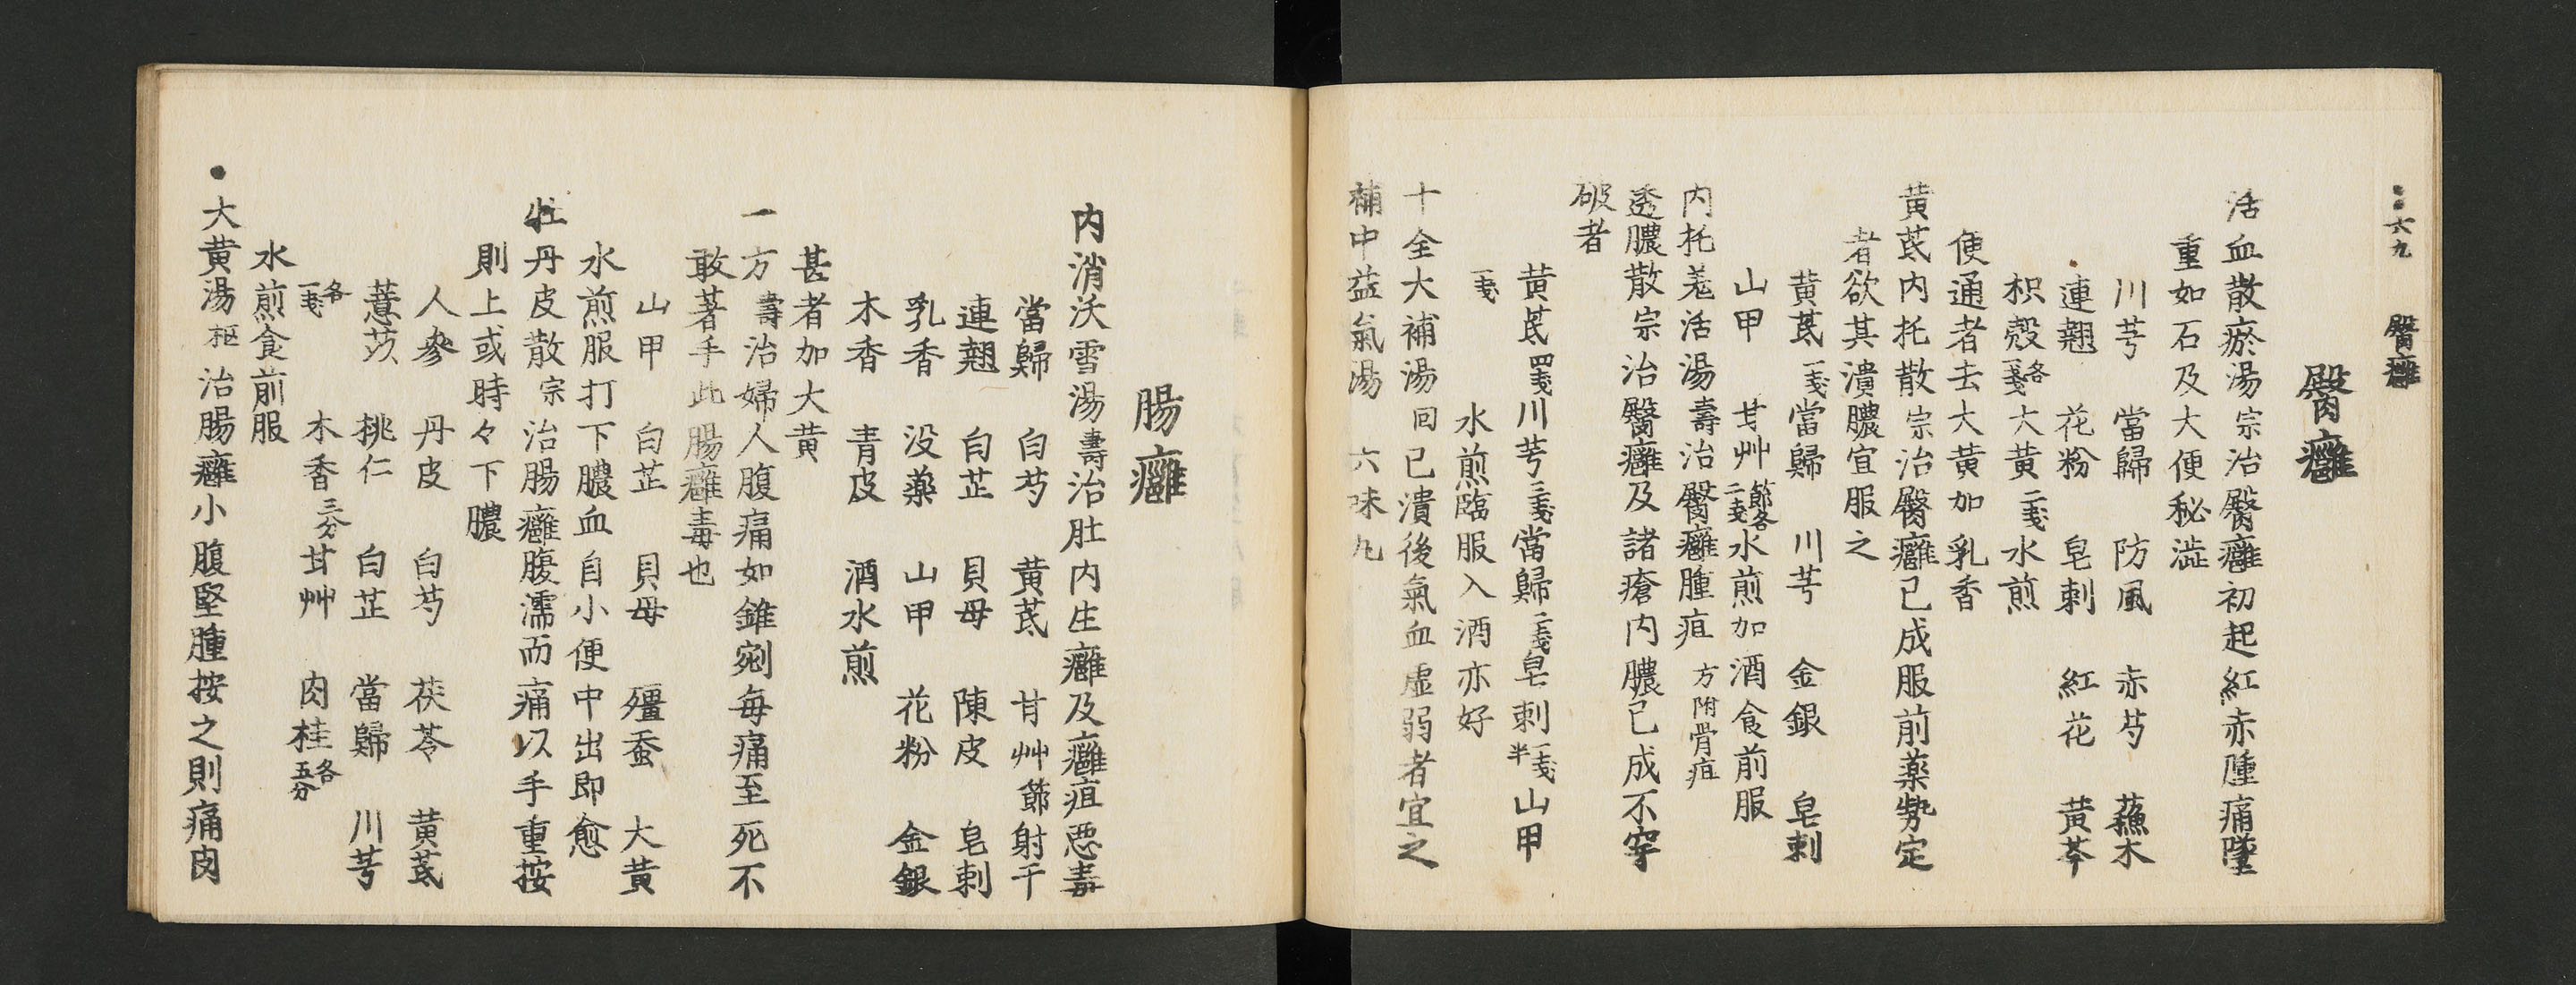 六九　臀癰
臀癰
活血散瘀湯宗治臀癰初起紅赤腫痛墜
重如石及大便秘澁
川芎　當歸　防風　赤芍　蘓木
連翹　花粉　皂刺　紅花　黃芩
枳殼各一戔大黃二戔　水煎
使通者去大黃加乳香
黃芪内托散宗治臀癰已成服前藥勢定
者欲其潰膿宜服之
黃芪一戔當歸　川芎　金銀　皂刺
山甲　甘艸節各二戔水煎加酒食前服
内托羗活湯壽治臀癰腫疽　方附骨疽
透膿散宗治臀癰及諸瘡内膿已成不穿
破者
黃芪四戔川芎三戔當歸二戔皂刺一戔半山甲
一戔　水煎臨服入酒亦好
十全大補湯回已潰後氣血虛弱者宜之
補中益氣湯　六味丸
腸癰
内消沃雪湯壽治肚内生癰及癰疽惡毒
當歸　白芍　黃芪　甘艸節射干
連翹　白芷　貝母　陳皮　皂刺
乳香　没藥　山甲　花粉　金銀
木香　青皮　酒水煎
甚者加大黃
一方壽治婦人腹痛如錐剜每痛至死不
敢著手此腸癰毒也
山甲　白芷　貝母　殭蚕　大黃
水煎服打下膿血自小便中出即愈
牡丹皮散宗治腸癰腹濡而痛以手重按
則上或時々下膿
人參　丹皮　白芍　茯苓　黃芪
薏苡　桃仁　白芷　當歸　川芎
各一戔　木香三分甘艸　肉桂各五分
水煎食前服
大黃湯樞治腸癰小腹堅腫按之則痛肉